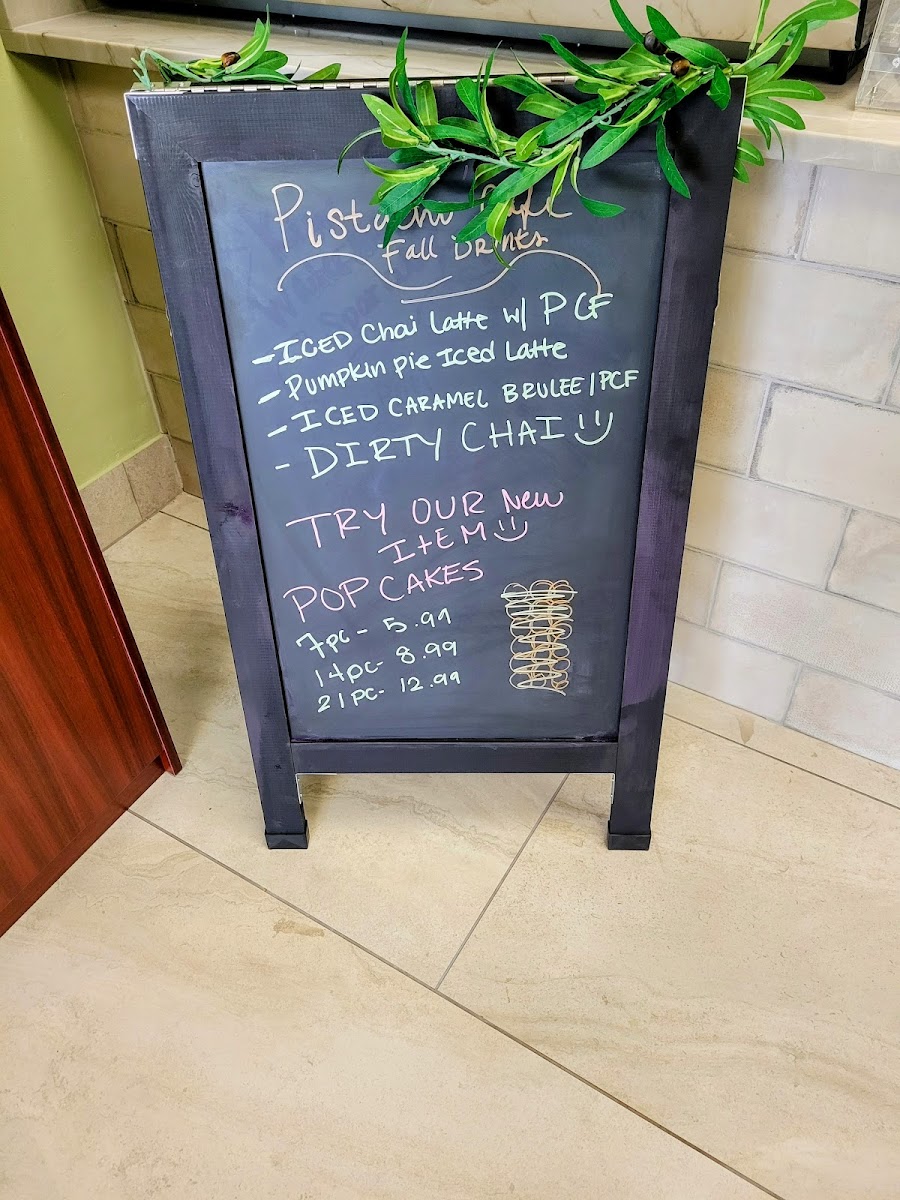 Fall Drinks
- ICED Chai Latte w/ PCF
- Pumpkin pie Iced Latte
- ICED CARAMEL BRULEE/PCF
- DIRTY CHAI
TRY OUR New
ITEM
POP CAKES
7pc - 5.99
14pc - 8.99
21pc - 12.99